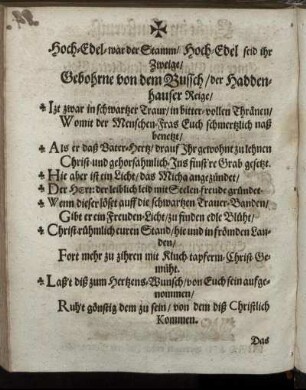 Hoch-Edel-war der Stamm/ Hoch-Edel seid ihr
Zweige/
Gebohrne von dem Bussch/ der Hadden-
hauser Reige/
Izt zwar in schwartzer Traur/ in bitter-vollen Thränen/
Womit der Menschen-Fras Euch schmertzlich naß
benetzt/
Als er daß Vater-Hertz/ drauf Jhr gewohnt zu lehnen
Christ-und gehorsahmlich/ Ins finst're Grab gesetzt.
Hie aber ist ein Licht/ das Micha angezündet/
Der HErr: der leiblich leid mit Seelen-freude gründet-
Wenn dieser löset auff die schwartzen Trauer-Banden/
Gibt er ein Freuden-Licht/ zu finden edle Blüht/
Christ-rühmlich euren Stand/ hie und in frömden Lan-
den/
Fort mehr zu zihren mit Kluch tapferm/ Christ-Ge-
müht.
Laß't diß zum Hertzens-Wunsch/ von Euch sein aufge-
nommen/
Ruh't günstig dem zu sein/ von dem diß Christlich
Kommen.
Das